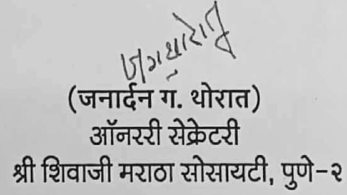 (जनार्दन ग. थोरात)
ऑनररी सेक्रेटरी
श्री शिवाजी मराठा सोसायटी, पुणे-२